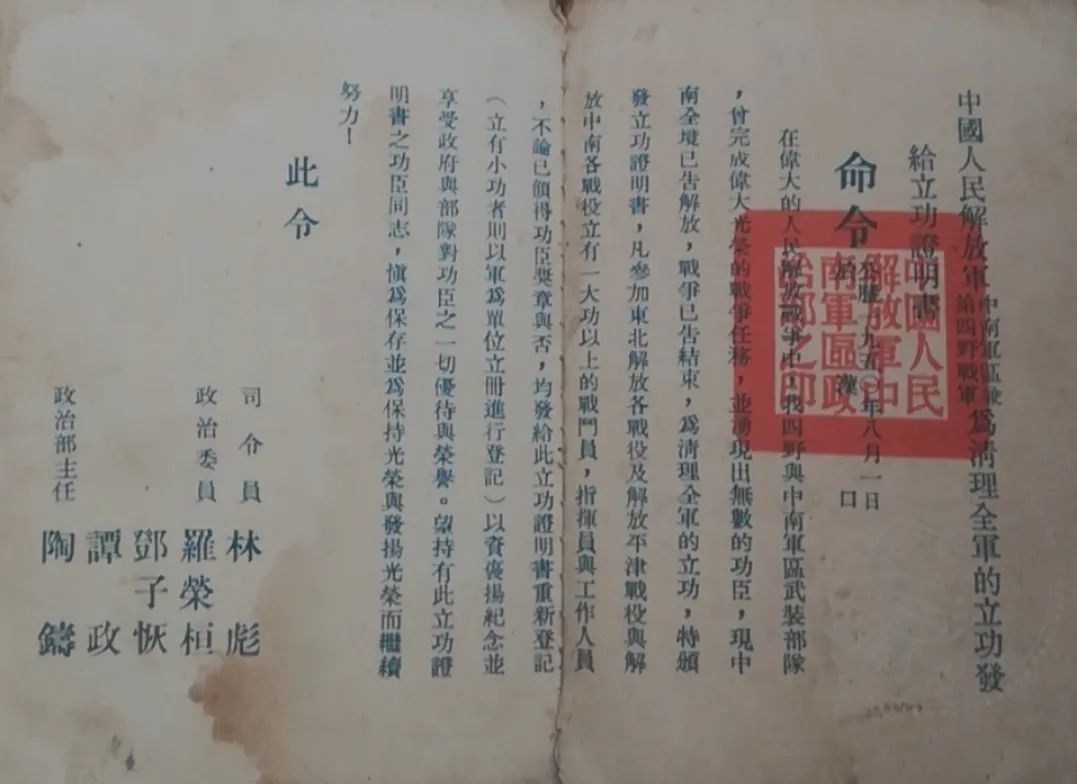 中國人民解放軍中南軍區兼第四野戰軍為清理全軍的立功發
給立功證明書
命令
公曆一九五〇年八月一日
於漢口
在偉大的人民解放戰爭中，我四野與中南軍區武裝部隊
，曾完成偉大光榮的戰爭任務，並湧現出無數的功臣，現中
南全境已告解放，戰爭已告結束，為清理全軍的立功，特頒
發立功證明書，凡參加東北解放各戰役及解放平津戰役與解
放中南各戰役立有一大功以上的戰鬥員，指揮員與工作人員
，不論已領得功臣獎章與否，均發給此立功證明書重新登記
（立有小功者則以軍為單位立冊進行登記）以資褒揚紀念並
享受政府與部隊對功臣之一切優待與榮譽。望持有此立功證
明書之功臣同志，慎為保存並為保持光榮與發揚光榮而繼續
努力！
此令
司令員 林彪
政治委員 羅榮桓
鄧子恢
譚政
政治部主任 陶鑄
中國人民
解放軍中
南軍區政
治部之印